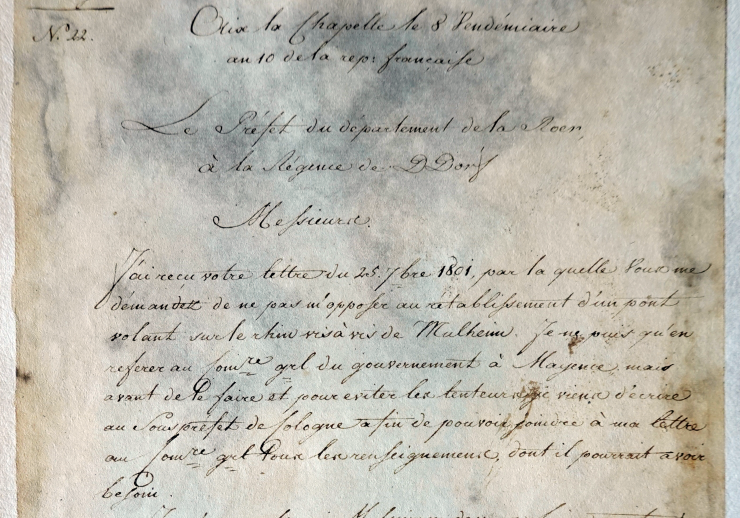 N.º 22.
Aix la Chapelle le 8 Vendémiaire
an 10 de la rep: française
Le Préfet du département de la Roer,
à la Régence de D Dorf
Messieurs.
J'ai reçu votre lettre du 25 7bre 1801, par la quelle Vous me
demandez de ne pas m'opposer au rétablissement d'un pont
volant sur le rhin vis à vis de Mulheim. Je ne puis qu'en
referer au Comre grl du gouvernement à Mayence, mais
avant de le faire et pour eviter les lenteurs je viens d'écrire
au Souspréfet de Cologne afin de pouvoir joindre à ma lettre
au Comre grl tous les renseignemens, dont il pourrait avoir
besoin.